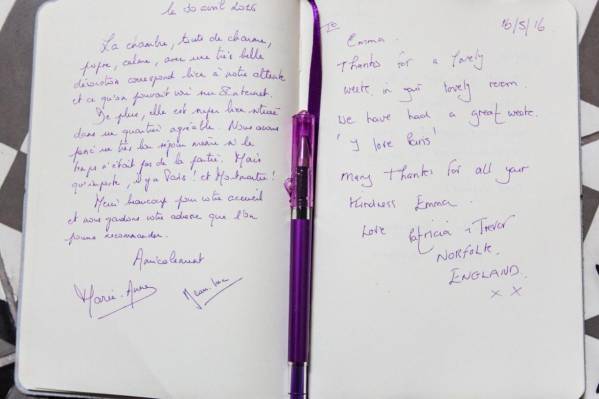 le 30 avril 2016
La chambre, toute de charme,
propre, calme, avec une très belle
décoration correspond bien à notre attente
et ce qu'on pouvait voir sur Internet.
De plus, elle est super bien située
dans un quartier agréable. Nous avons
passé un très bon séjour même si le
temps n'était pas de la partie. Mais
qu'importe, il y a Paris! et Montmartre!
Merci beaucoup pour votre accueil
et nous gardons votre adresse que l'on
pourra recommander.
Amicalement
Marie-Anne
Jean-Luc
15/5/16
To
Emma.
Thanks for a lovely
week in your lovely room.
We have had a great week.
'I love Paris'
Many Thanks for all your
Kindness Emma.
Love Patricia & Trevor
NORFOLK.
ENGLAND.
x x